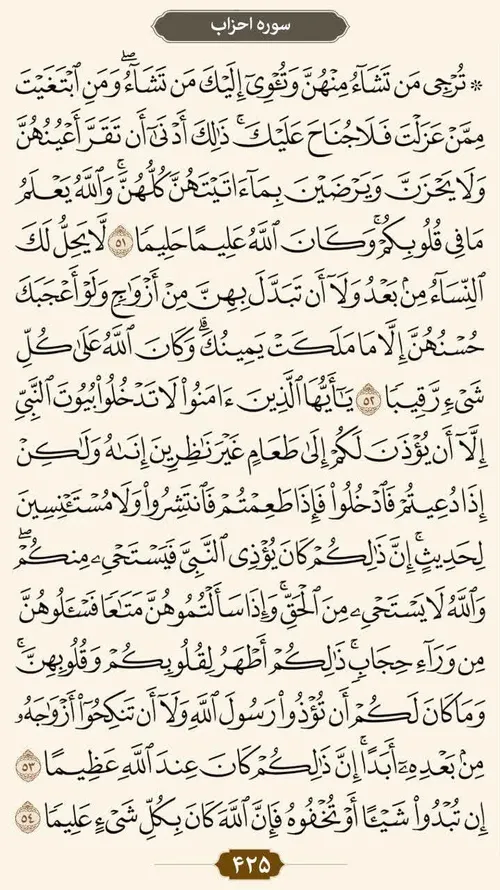 سوره احزاب
* تُرْجِى مَن تَشَآءُ مِنْهُنَّ وَتُـْٔوِىٓ إِلَيْكَ مَن تَشَآءُۖ وَمَنِ ٱبْتَغَيْتَ
مِمَّنْ عَزَلْتَ فَلَا جُنَاحَ عَلَيْكَۚ ذَٰلِكَ أَدْنَىٰٓ أَن تَقَرَّ أَعْيُنُهُنَّ
وَلَا يَحْزَنَّ وَيَرْضَيْنَ بِمَآ ءَاتَيْتَهُنَّ كُلُّهُنَّۚ وَٱللَّهُ يَعْلَمُ
مَا فِى قُلُوبِكُمْۚ وَكَانَ ٱللَّهُ عَلِيمًا حَلِيمًا ۝٥١ لَّا يَحِلُّ لَكَ
ٱلنِّسَآءُ مِنۢ بَعْدُ وَلَآ أَن تَبَدَّلَ بِهِنَّ مِنْ أَزْوَٰجٍ وَلَوْ أَعْجَبَكَ
حُسْنُهُنَّ إِلَّا مَا مَلَكَتْ يَمِينُكَۗ وَكَانَ ٱللَّهُ عَلَىٰ كُلِّ
شَىْءٍ رَّقِيبًا ۝٥٢ يَـٰٓأَيُّهَا ٱلَّذِينَ ءَامَنُوا۟ لَا تَدْخُلُوا۟ بُيُوتَ ٱلنَّبِىِّ
إِلَّآ أَن يُؤْذَنَ لَكُمْ إِلَىٰ طَعَامٍ غَيْرَ نَـٰظِرِينَ إِنَىٰهُ وَلَـٰكِنْ
إِذَا دُعِيتُمْ فَٱدْخُلُوا۟ فَإِذَا طَعِمْتُمْ فَٱنتَشِرُوا۟ وَلَا مُسْتَـْٔنِسِينَ
لِحَدِيثٍۚ إِنَّ ذَٰلِكُمْ كَانَ يُؤْذِى ٱلنَّبِىَّ فَيَسْتَحْىِۦ مِنكُمْۖ
وَٱللَّهُ لَا يَسْتَحْىِۦ مِنَ ٱلْحَقِّۚ وَإِذَا سَأَلْتُمُوهُنَّ مَتَـٰعًا فَسْـَٔلُوهُنَّ
مِن وَرَآءِ حِجَابٍۚ ذَٰلِكُمْ أَطْهَرُ لِقُلُوبِكُمْ وَقُلُوبِهِنَّۚ
وَمَا كَانَ لَكُمْ أَن تُؤْذُوا۟ رَسُولَ ٱللَّهِ وَلَآ أَن تَنكِحُوٓا۟ أَزْوَٰجَهُۥ
مِنۢ بَعْدِهِۦٓ أَبَدًاۚ إِنَّ ذَٰلِكُمْ كَانَ عِندَ ٱللَّهِ عَظِيمًا ۝٥٣
إِن تُبْدُوا۟ شَيْـًٔا أَوْ تُخْفُوهُ فَإِنَّ ٱللَّهَ كَانَ بِكُلِّ شَىْءٍ عَلِيمًا ۝٥٤
۴۲۵